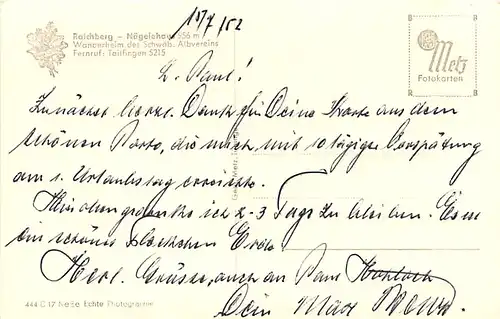 10/7/52
Raichberg – Nägelehaus 956 m
Wanderheim des Schwäb. Albvereins
Fernruf: Tailfingen 5215
Metz
Fotokarten
L. Paul!
Zunächst herzl. Dank für Deine Karte aus dem
schönen Porto, die mich mit 10 tägiger Verspätung
am 1. Urlaubstag erreichte.
Hier oben gedenke ich 2-3 Tage zu bleiben. Es ist
ein schönes Fleckchen Erde.
Herzl. Grüsse, auch an Paul
Dein Max
444 C 17 Ne8e Echte Photographie